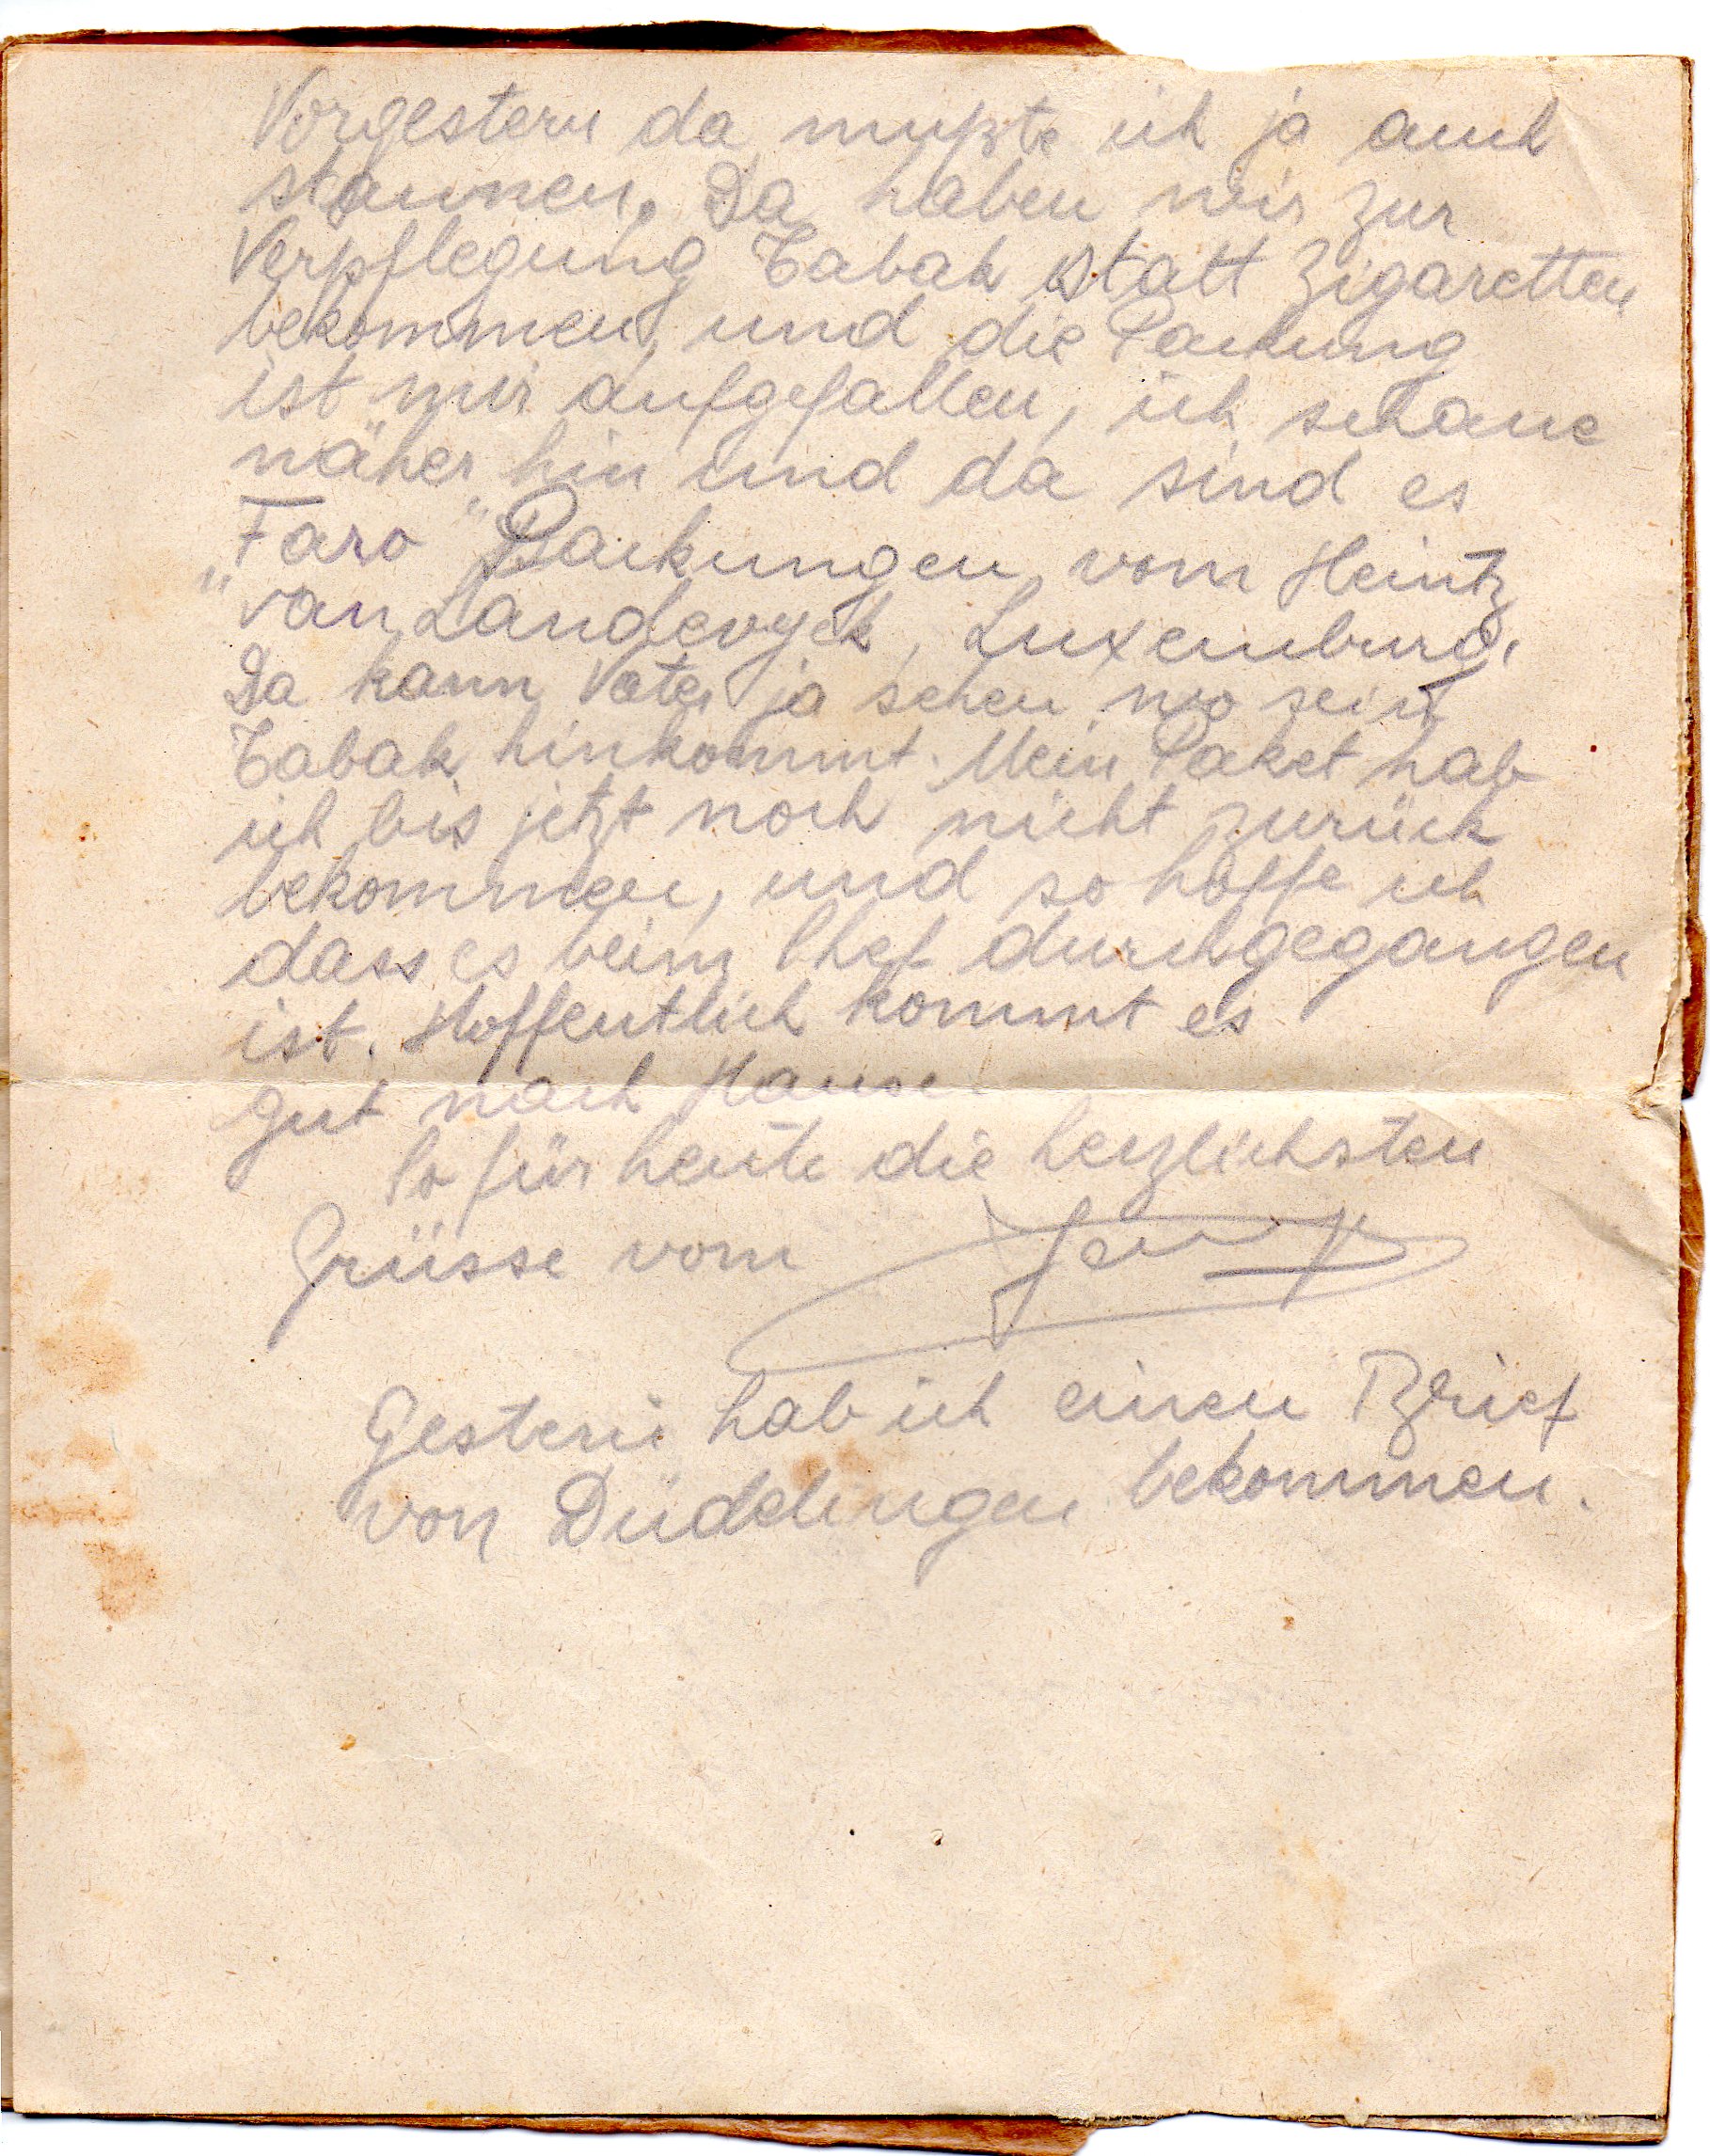 Vorgestern da mußte ich ja auch
staunen. Da haben wir zur
Verpflegung Tabak statt Zigaretten
bekommen, und die Packung
ist mir aufgefallen, ich schaue
näher hin und da sind es
„Faro" Packungen vom Heintz
van Landevyck, Luxemburg.
Da kann Vater ja sehen wo sein
Tabak hinkommt. Mein Paket hab
ich bis jetzt noch nicht zurück
bekommen, und so hoffe ich
dass es beim Chef durchgegangen
ist. Hoffentlich kommt es
gut nach Hause.
So für heute die herzlichsten
Grüsse vom
Gestern hab ich einen Brief
von Düdelingen bekommen.